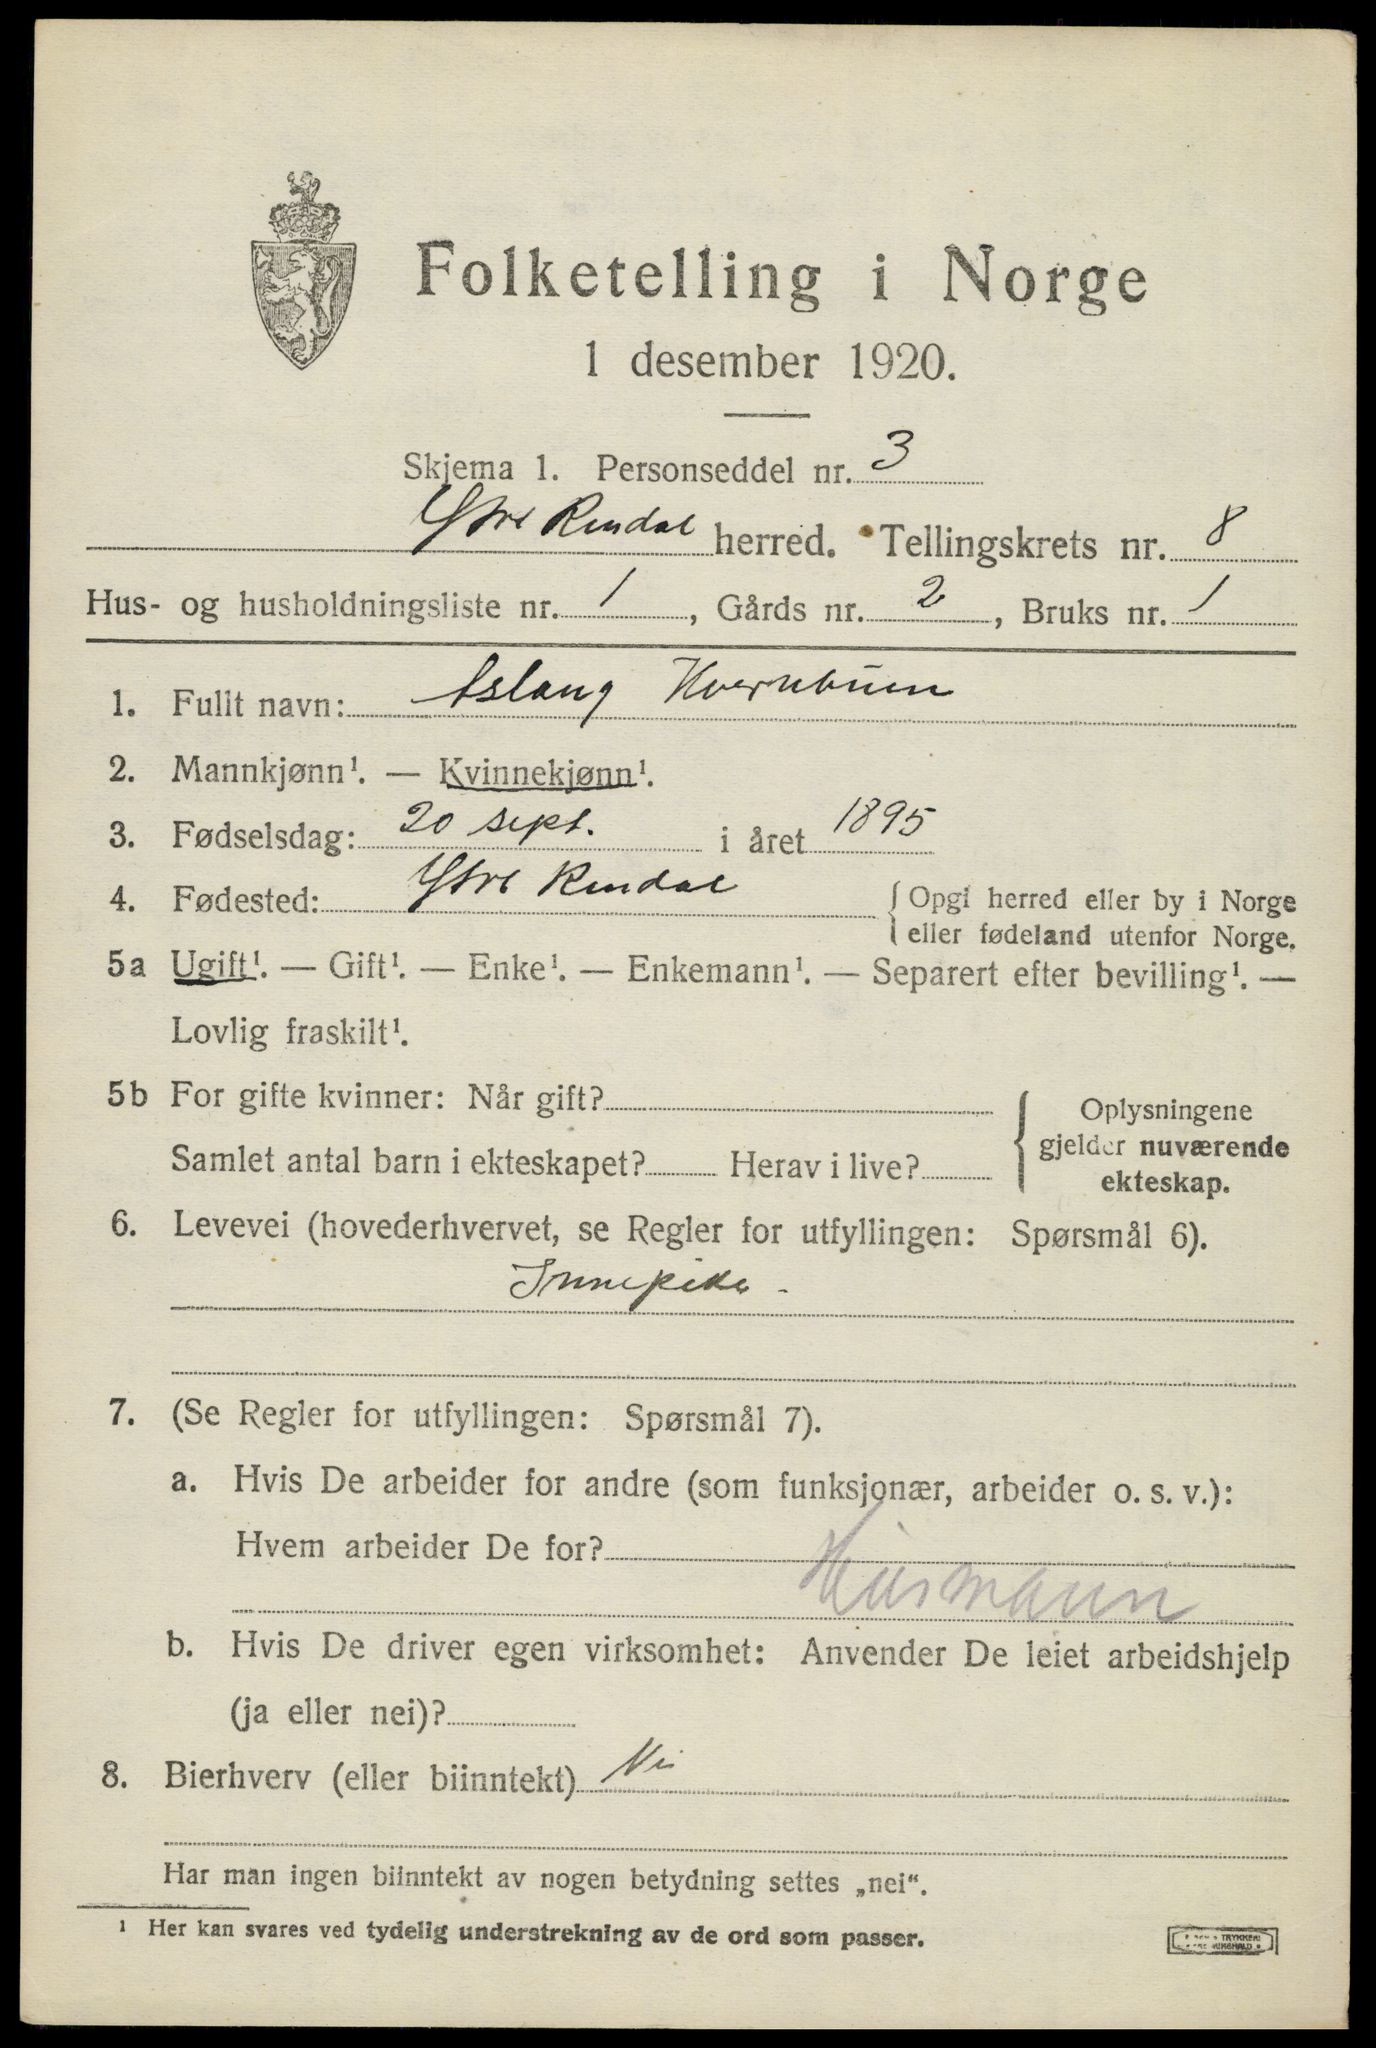 Folketelling i Norge
1 desember 1920.
Skjema 1. Personseddel nr. 3
Ytre Rendal herred. Tellingskrets nr. 8
Hus- og husholdningsliste nr. 1, Gårds nr. 2, Bruks nr. 1
1. Fullt navn: Aslaug Hvernbuen
2. Mannkjønn¹. — Kvinnekjønn¹.
3. Fødselsdag: 20 sept. i året 1895
4. Fødested: Ytre Rendal {Opgi herred eller by i Norge
eller fødeland utenfor Norge.
5a Ugift¹. — Gift¹. — Enke¹. — Enkemann¹. — Separert efter bevilling¹. —
Lovlig fraskilt¹.
5b For gifte kvinner: Når gift?
Samlet antal barn i ekteskapet? Herav i live?
{Oplysningene
gjelder nuværende
ekteskap.
6. Levevei (hovederhvervet, se Regler for utfyllingen: Spørsmål 6).
Innepike -
7. (Se Regler for utfyllingen: Spørsmål 7).
a. Hvis De arbeider for andre (som funksjonær, arbeider o. s. v.):
Hvem arbeider De for?
Husmann
b. Hvis De driver egen virksomhet: Anvender De leiet arbeidshjelp
(ja eller nei)?
8. Bierhverv (eller biinntekt) Nei
Har man ingen biinntekt av nogen betydning settes „nei“.
¹ Her kan svares ved tydelig understrekning av de ord som passer.